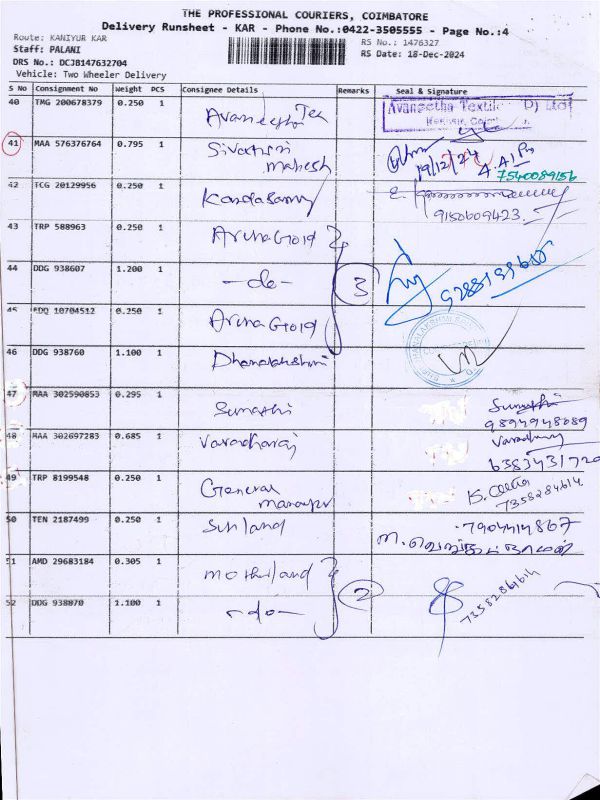 THE PROFESSIONAL COURIERS, COIMBATORE
Delivery Runsheet - KAR - Phone No.:0422-3505555 - Page No.:4
Route: KANIYUR KAR
RS No.: 1476327
Staff: PALANI
RS Date: 18-Dec-2024
DRS No.: DCJB147632704
Vehicle: Two Wheeler Delivery
S No Consignment No Weight PCS Consignee Details Remarks Seal & Signature
40 TMG 200678379 0.250 1 Avaneetha Tex Avaneetha Textile
41 MAA 576376764 0.795 1 Sivathri
mahesh 19/12/24 7540089156
42 TCG 20129956 0.250 1 Kandasamy 9150609423
43 TRP 588963 0.250 1 Arena Gold
44 DDG 938607 1.200 1 -do- 3
45 EDQ 10704512 0.250 1 Arena Gold
46 DDG 938760 1.100 1
47 MAA 302590853 0.295 1 Sumathi Sumathi
9894948089
48 MAA 302697283 0.685 1 Varadharaj
6383431720
49 TRP 8199548 0.250 1 General
manager 7358284614
50 TEN 2187499 0.250 1 Sunland 7904414867
51 AMD 29683184 0.305 1 motherland
52 DDG 938070 1.100 1 -do- 2